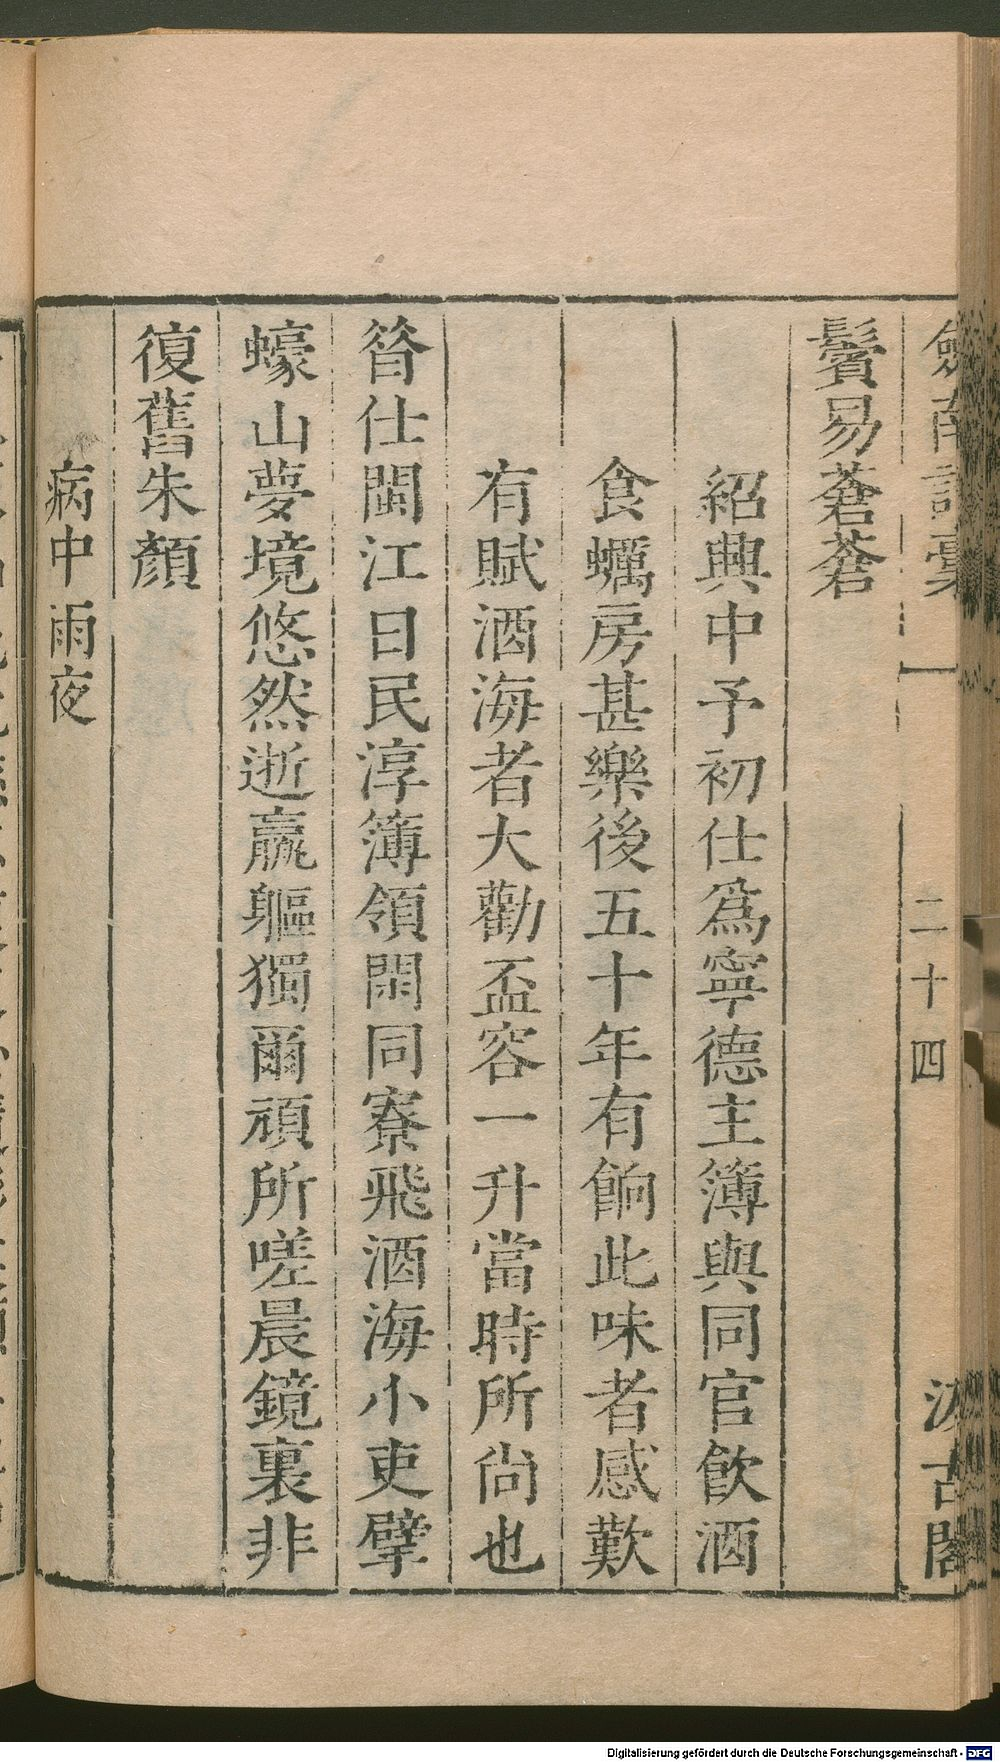 劍南詩稾
二十四
汲古閣
鬢昜蒼蒼
紹興中予初仕爲寧德主簿與同官飲酒
食蠣房甚樂後五十年有餉此味者感歎
有賦酒海者大勸盃容一升當時所尚也
昝仕閩江日民淳簿領閑同寮飛酒海小吏擘
蠔山夢境悠然逝羸軀獨爾頑所嗟晨鏡裏非
復舊朱顏
病中雨夜
Digitalisierung gefördert durch die Deutsche Forschungsgemeinschaft - DFG